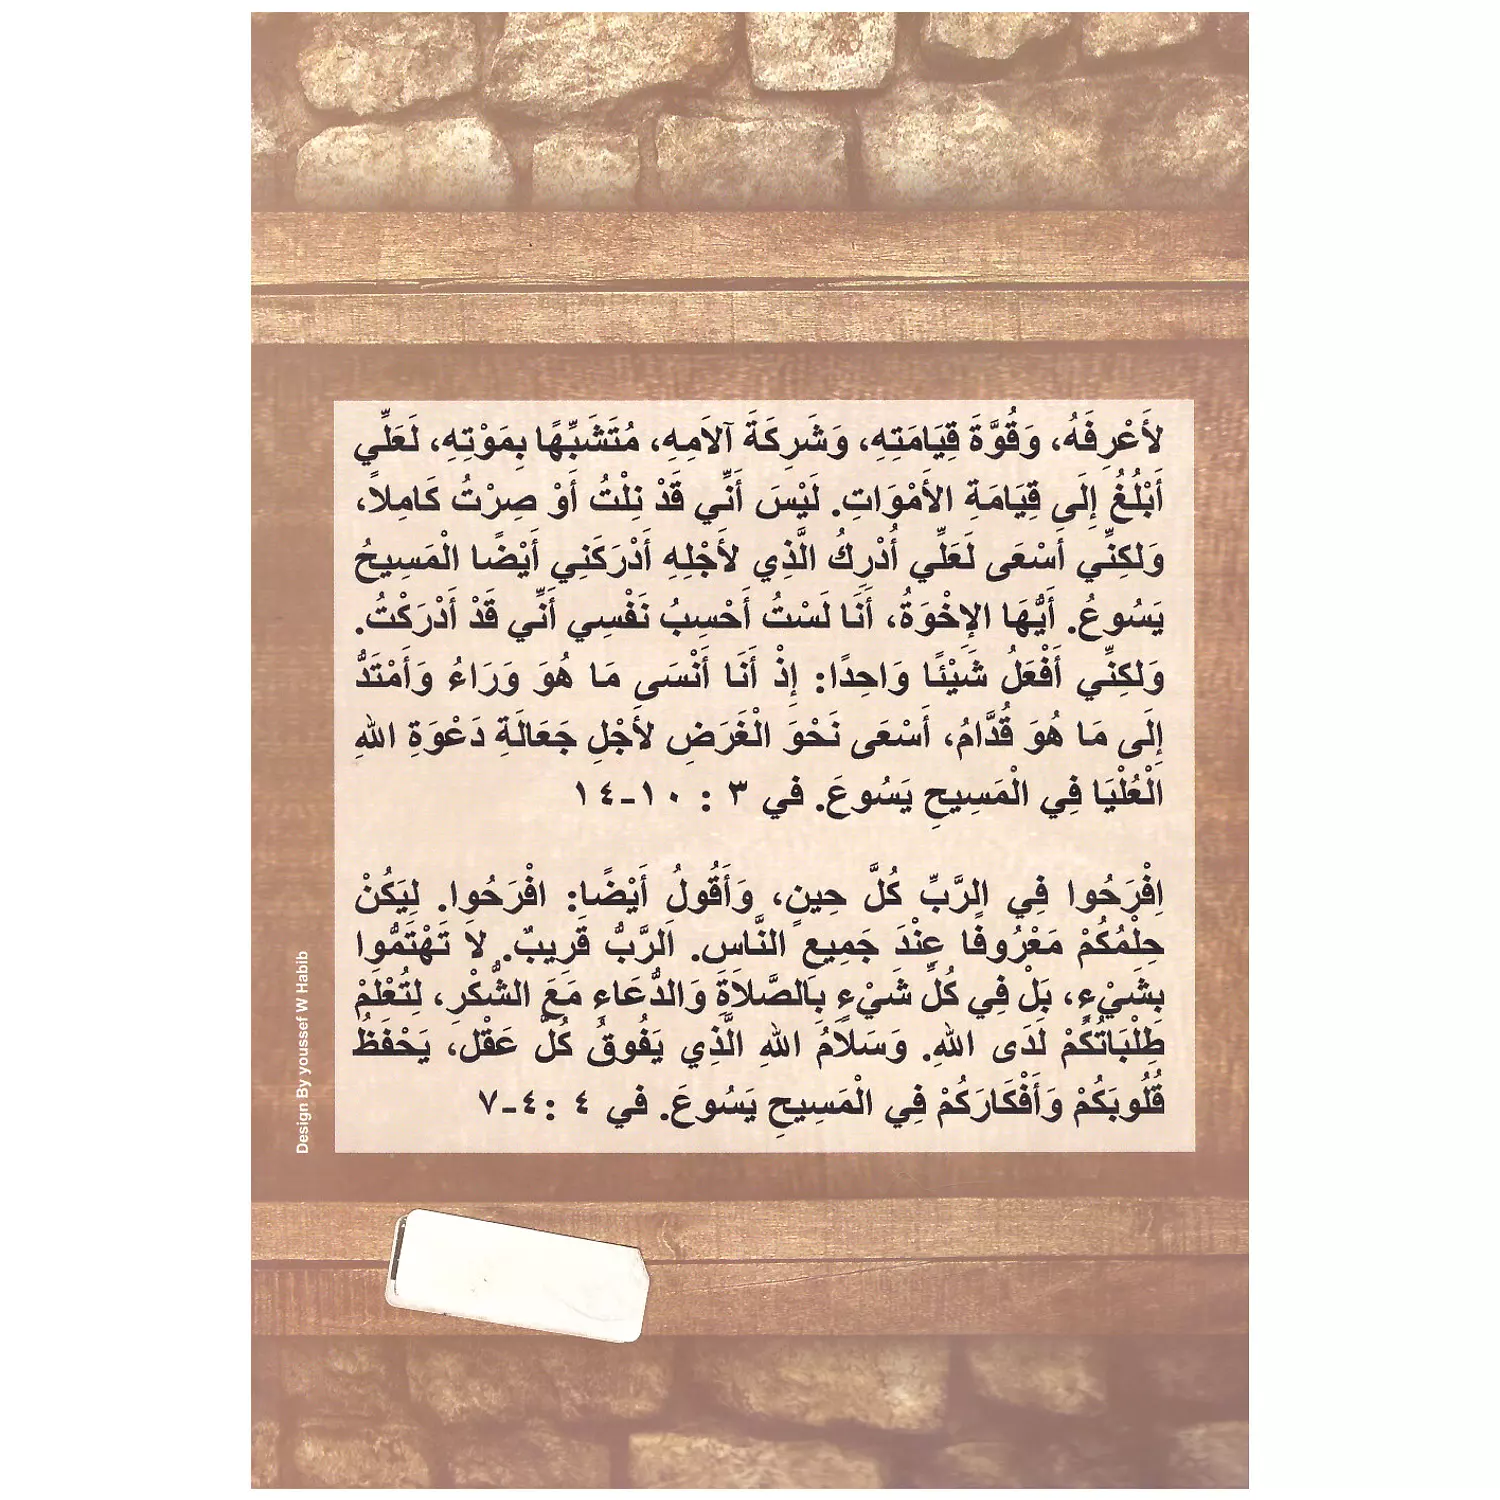 لأَعْرِفَهُ، وَقُوَّةَ قِيَامَتِهِ، وَشَرِكَةَ آلاَمِهِ، مُتَشَبِّهًا بِمَوْتِهِ، لَعَلِّي
أَبْلُغُ إِلَى قِيَامَةِ الأَمْوَاتِ. لَيْسَ أَنِّي قَدْ نِلْتُ أَوْ صِرْتُ كَامِلاً،
وَلكِنِّي أَسْعَى لَعَلِّي أُدْرِكُ الَّذِي لأَجْلِهِ أَدْرَكَنِي أَيْضًا الْمَسِيحُ
يَسُوعُ. أَيُّهَا الإِخْوَةُ، أَنَا لَسْتُ أَحْسِبُ نَفْسِي أَنِّي قَدْ أَدْرَكْتُ.
وَلكِنِّي أَفْعَلُ شَيْئًا وَاحِدًا: إِذْ أَنَا أَنْسَى مَا هُوَ وَرَاءُ وَأَمْتَدُّ
إِلَى مَا هُوَ قُدَّامُ، أَسْعَى نَحْوَ الْغَرَضِ لأَجْلِ جَعَالَةِ دَعْوَةِ اللهِ
الْعُلْيَا فِي الْمَسِيحِ يَسُوعَ. في ٣ : ١٠-١٤
اِفْرَحُوا فِي الرَّبِّ كُلَّ حِينٍ، وَأَقُولُ أَيْضًا: افْرَحُوا. لِيَكُنْ
حِلْمُكُمْ مَعْرُوفًا عِنْدَ جَمِيعِ النَّاسِ. اَلرَّبُّ قَرِيبٌ. لاَ تَهْتَمُّوا
بِشَيْءٍ، بَلْ فِي كُلِّ شَيْءٍ بِالصَّلاَةِ وَالدُّعَاءِ مَعَ الشُّكْرِ، لِتُعْلَمْ
طِلْبَاتُكُمْ لَدَى اللهِ. وَسَلاَمُ اللهِ الَّذِي يَفُوقُ كُلَّ عَقْل، يَحْفَظُ
قُلُوبَكُمْ وَأَفْكَارَكُمْ فِي الْمَسِيحِ يَسُوعَ. في ٤ :٤-٧
Design By youssef W Habib